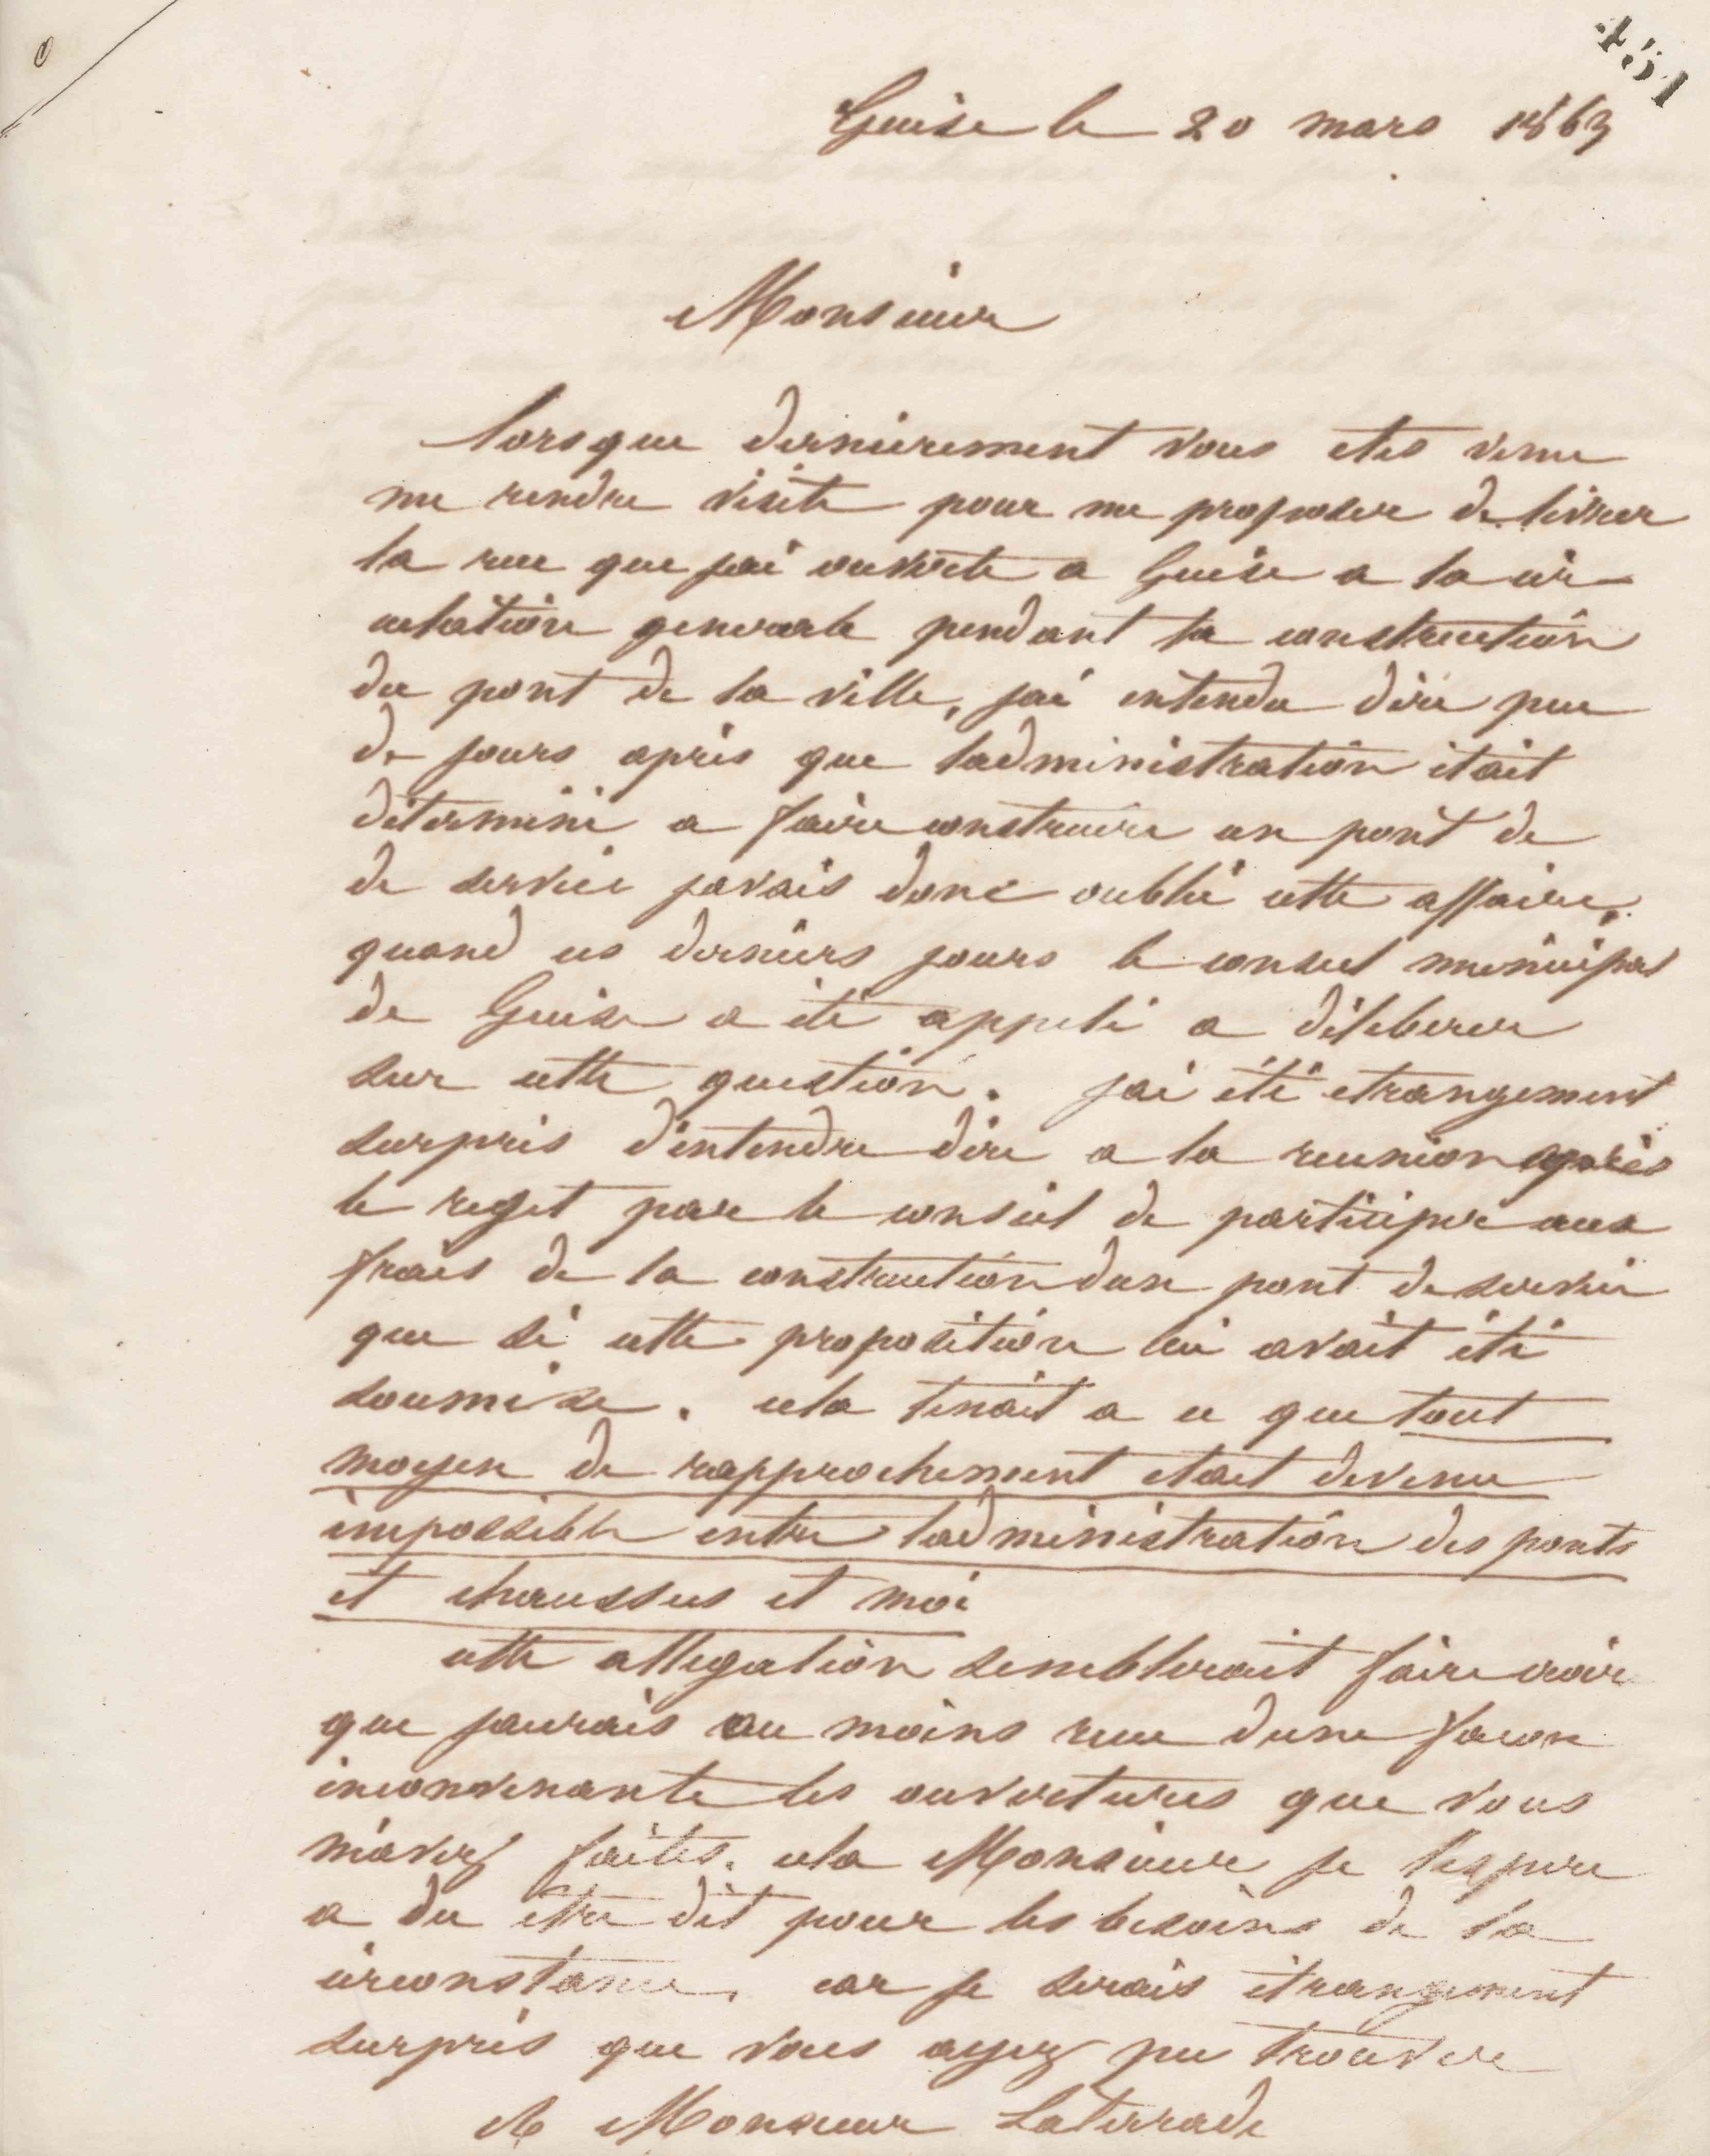 451
Guise le 20 mars 1863
Monsieur
lorsque dernierement vous etes venu
me rendre visite pour me proposer de livrer
la rue que jai ouverte a Guise a la cir
culation generale pendant la construction
du pont de la ville, jai entendu dire peu
de jours après que ladministration était
déterminé a faire construire un pont de
de service javais donc oublié cette affaire,
quand ces derniers jours le conseil municipal
de Guise a été appelé a déliberer
sur cette question. jai été etrangement
surpris d'entendre dire a la reunion après
le rejet par le conseil de participer aux
frais de la construction dun pont de service
que si cette proposition lui avait été
soumise. cela tenait a ce que tout
moyen de rapprochement etait devenu
impossible entre ladministration des ponts
et chaussees et moi
cette allegation semblerait faire croire
que jaurais au moins recu dune facon
inconvenante les ouvertures que vous
m'avez faites. cela Monsieur je lespere
a du etre dit pour les besoins de la
circonstance, car je serais étrangement
surpris que vous ayez pu trouver
A Monsieur Laterrade